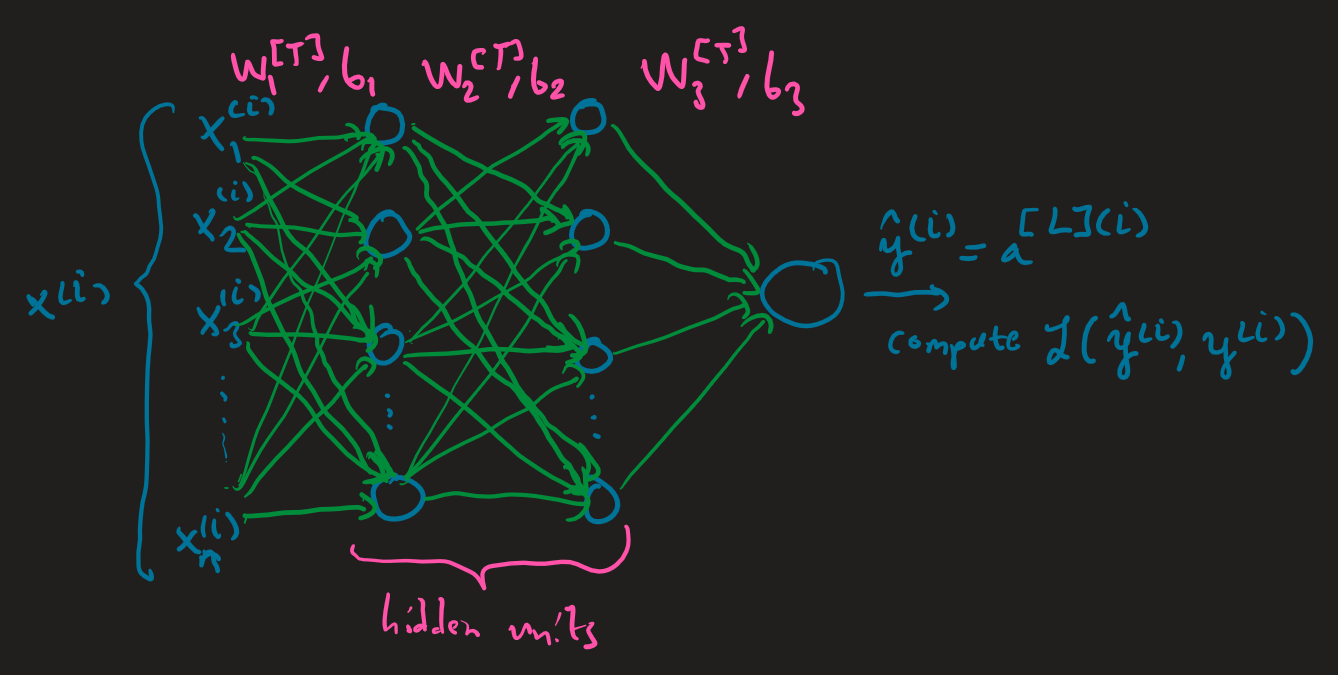 W₁^[T], b₁
W₂^[T], b₂
W₃^[T], b₃
x₁^(i)
x₂^(i)
x₃^(i)
xₙ^(i)
x^(i)
ŷ^(i) = a^[L](i)
compute ℒ(ŷ^(i), y^(i))
hidden units